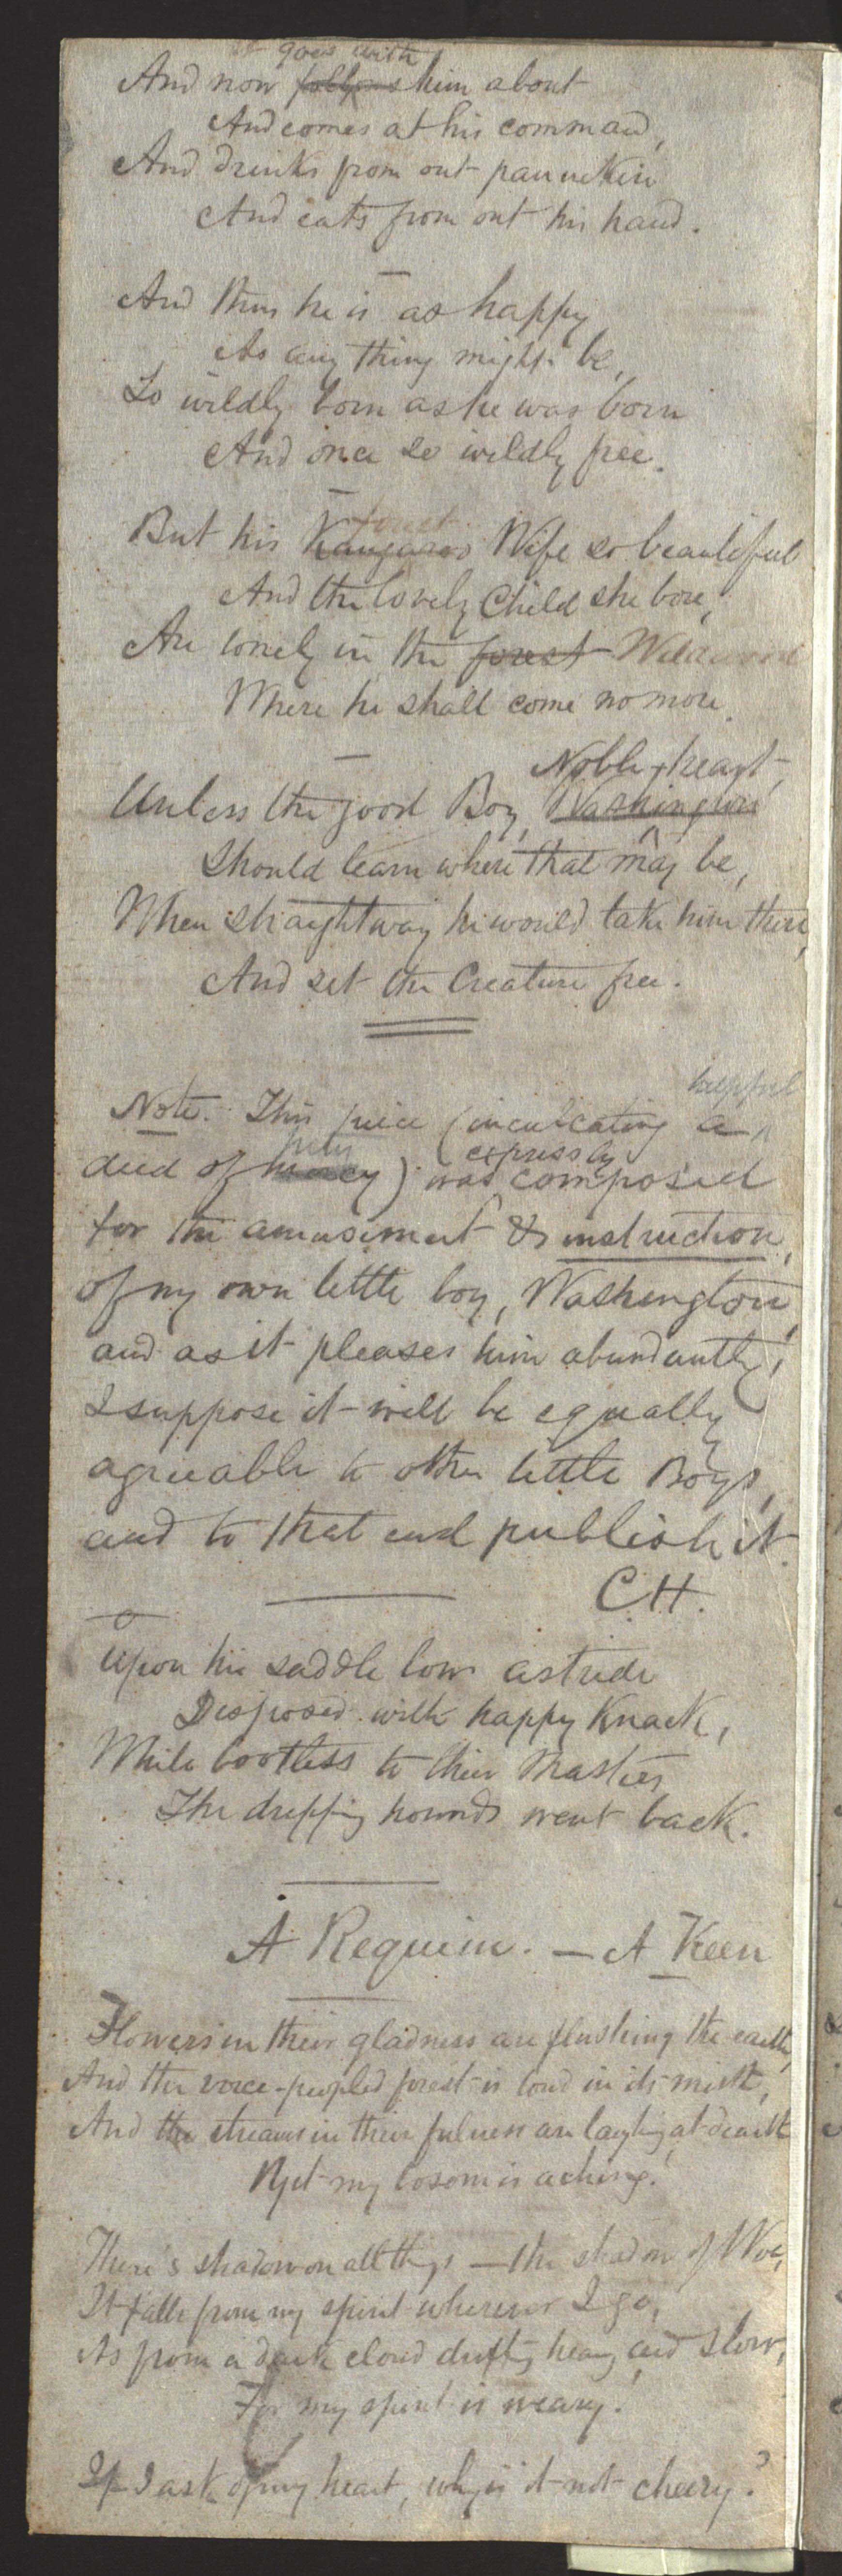 goes with
And now follows him about
And comes at his command,
And drinks from out pannekin
And eats from out his hand.
And thus he is as happy
As any thing might be,
So wildly born as he was born
And once so wildly free.
forest
But his Kangaroo Wife so beautiful
And the lovely Child she bore,
Are lonely in the forest
Where he shall come no more.
Noble-heart,
Unless the good Boy, Washington
Should learn where that may be,
When straightway he would take him there,
And set the Creature free.
helpful
Note. This piece (inculcating a
pity expressly
deed of mercy) was composed
for the amusement & instruction,
of my own little boy, Washington,
and as it pleases him abundantly,
I suppose it will be equally
agreeable to other little Boys,
and to that end publish it.
C.H.
Upon his saddle bow astride
Disposed with happy Knack,
While bootless to their Master,
The dripping hounds went back.
A Requiem. — A Keen
Flowers in their gladness are flushing the earth,
And the voice-peopled forest is loud in its mirth,
And the streams in their fulness are laughing at dearth
Yet my bosom is aching!
There's shadow on all things — the shadow of Woe,
It falls from my spirit wherever I go,
As from a dark cloud drifting heavy and slow,
For my spirit is weary!
If I ask of my heart, why is it not cheery?